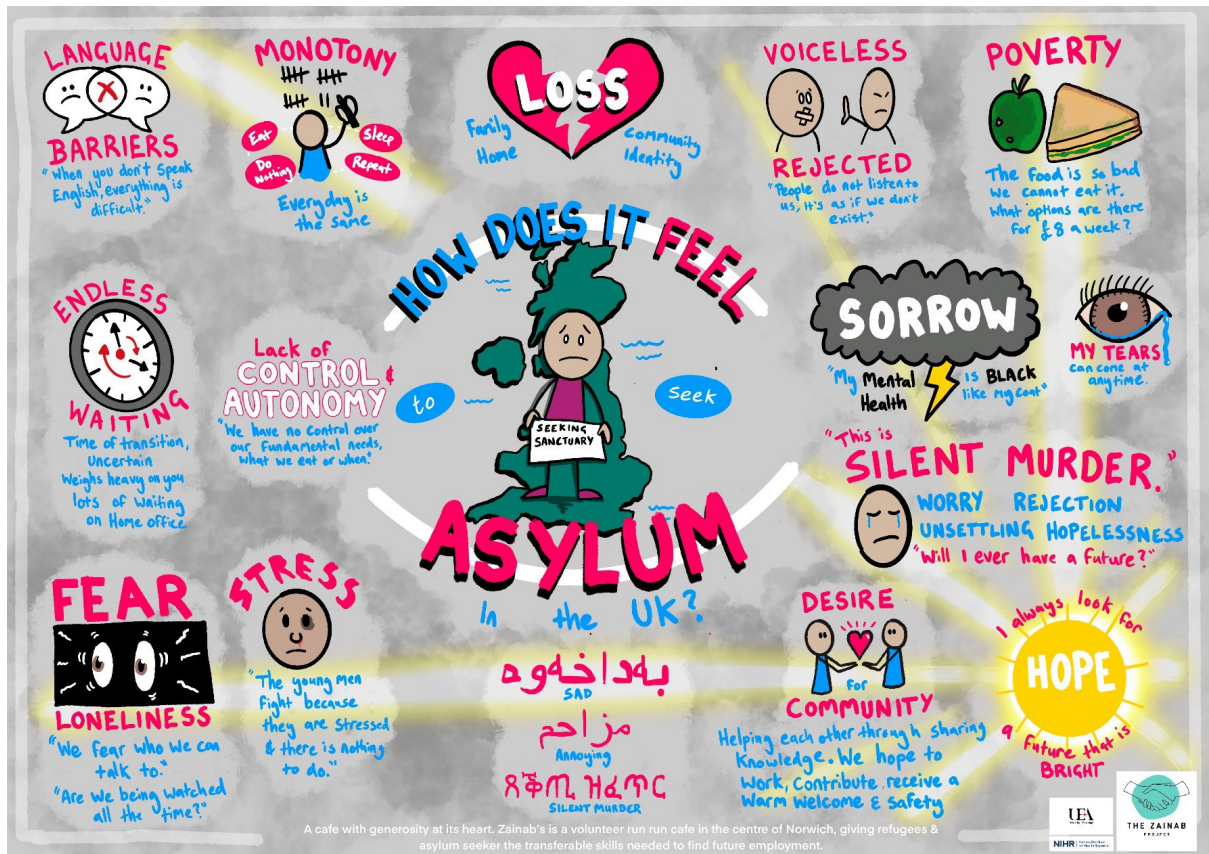 LANGUAGE
BARRIERS
"When you don't speak
English, everything is
difficult."
MONOTONY
Eat
Sleep
Do
Nothing
Repeat
Everyday is
the same
LOSS
Family
Home
Community
Identity
VOICELESS
REJECTED
"People do not listen to
us, it's as if we don't
exist."
POVERTY
The food is so bad
we cannot eat it.
What options are there
for £8 a week?
HOW DOES IT FEEL
to
seek
SEEKING
SANCTUARY
ASYLUM
In the UK?
ENDLESS
WAITING
Time of transition,
Uncertain
Weighs heavy on you
lots of waiting
on Home office
Lack of
CONTROL &
AUTONOMY
"We have no control over
our fundamental needs,
what we eat or when."
SORROW
"My Mental
Health
is BLACK
like my coat"
MY TEARS
can come at
anytime.
"This is
SILENT MURDER."
WORRY REJECTION
UNSETTLING HOPELESSNESS
"Will I ever have a future?"
FEAR
LONELINESS
"We fear who we can
talk to."
"Are we being watched
all the time?"
STRESS
"The young men
fight because
they are stressed
& there is nothing
to do."
بەداخەوە
SAD
مزاحم
Annoying
SILENT MURDER
DESIRE
for
COMMUNITY
Helping each other through sharing
Knowledge. We hope to
Work, Contribute, receive a
Warm Welcome & safety
I always look for
HOPE
a future that is
BRIGHT
A cafe with generosity at its heart. Zainab's is a volunteer run run cafe in the centre of Norwich, giving refugees &
asylum seeker the transferable skills needed to find future employment.
UEA
NIHR
THE ZAINAB
PROJECT